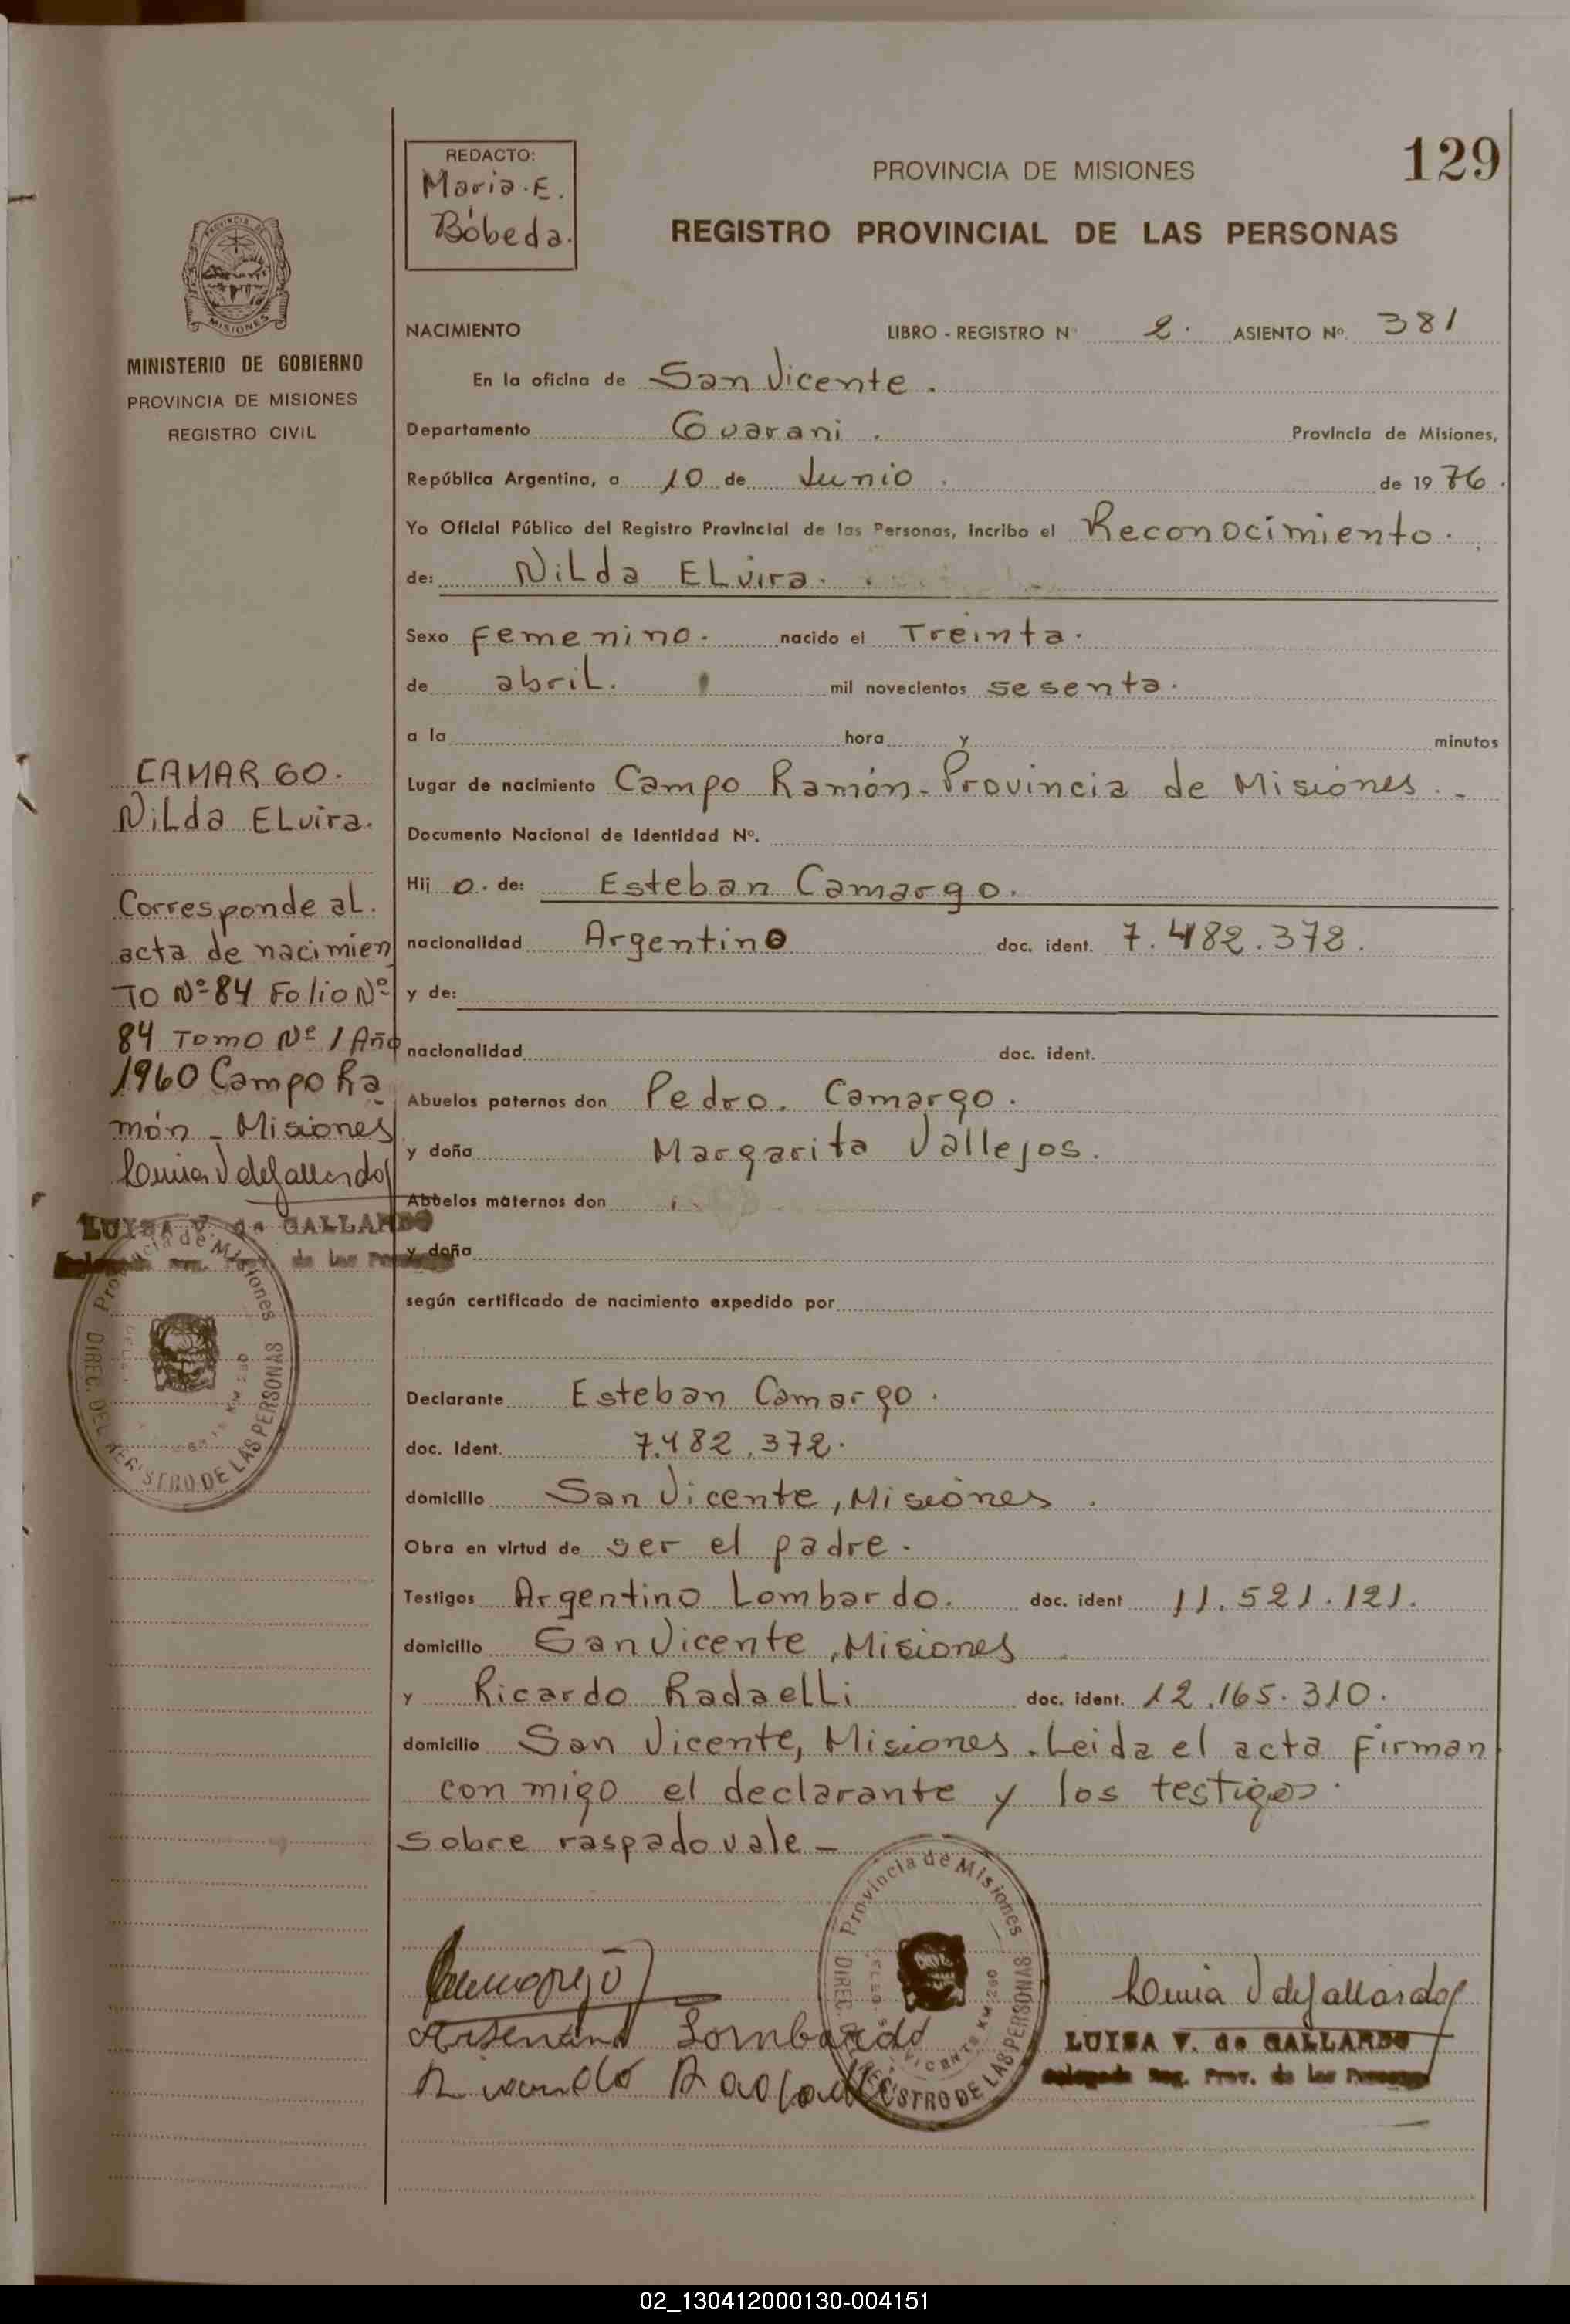 129
REDACTO:
Maria. E.
Bóbeda.
PROVINCIA DE MISIONES
REGISTRO PROVINCIAL DE LAS PERSONAS
MISIONES
MINISTERIO DE GOBIERNO
PROVINCIA DE MISIONES
REGISTRO CIVIL
NACIMIENTO LIBRO - REGISTRO Nº 2. ASIENTO Nº 381
En la oficina de San Vicente.
Departamento Guarani. Provincia de Misiones,
República Argentina, a 10 de Junio. de 1976.
Yo Oficial Público del Registro Provincial de las Personas, incribo el Reconocimiento.
de: Nilda Elvira.
Sexo Femenino. nacido el Treinta.
de abril. mil novecientos sesenta.
a la hora y minutos
Lugar de nacimiento Campo Ramón - Provincia de Misiones. -
Documento Nacional de Identidad Nº.
Hij o. de: Esteban Camargo.
nacionalidad Argentino doc. ident. 7.482.372.
y de:
nacionalidad doc. ident.
Abuelos paternos don Pedro. Camargo.
y doña Margarita Vallejos.
Abuelos maternos don
y doña
según certificado de nacimiento expedido por
Declarante Esteban Camargo.
doc. Ident. 7.482.372.
domicilio San Vicente, Misiones.
Obra en virtud de ser el padre.
Testigos Argentino Lombardo. doc. ident 11.521.121.
domicilio San Vicente, Misiones
y Ricardo Radaelli doc. ident. 12.165.310.
domicilio San Vicente, Misiones. Leida el acta firman
con migo el declarante y los testigos.
Sobre raspado vale -
CAMARGO.
Nilda Elvira.
Corresponde al.
acta de nacimien
to Nº 84 Folio Nº
84 Tomo Nº 1 Año
1960 Campo Ra
món - Misiones
Luisa V de Gallardo
LUISA V. de GALLARDO
Delegada Reg. Prov. de las Personas
Provincia de Misiones
DIREC. DEL REGISTRO DE LAS PERSONAS
Camargo
Argentino Lombardo
Ricardo Radaelli
Provincia de Misiones
DIREC. DEL REGISTRO DE LAS PERSONAS
Luisa V de Gallardo
LUISA V. de GALLARDO
Delegada Reg. Prov. de las Personas
02_130412000130-004151